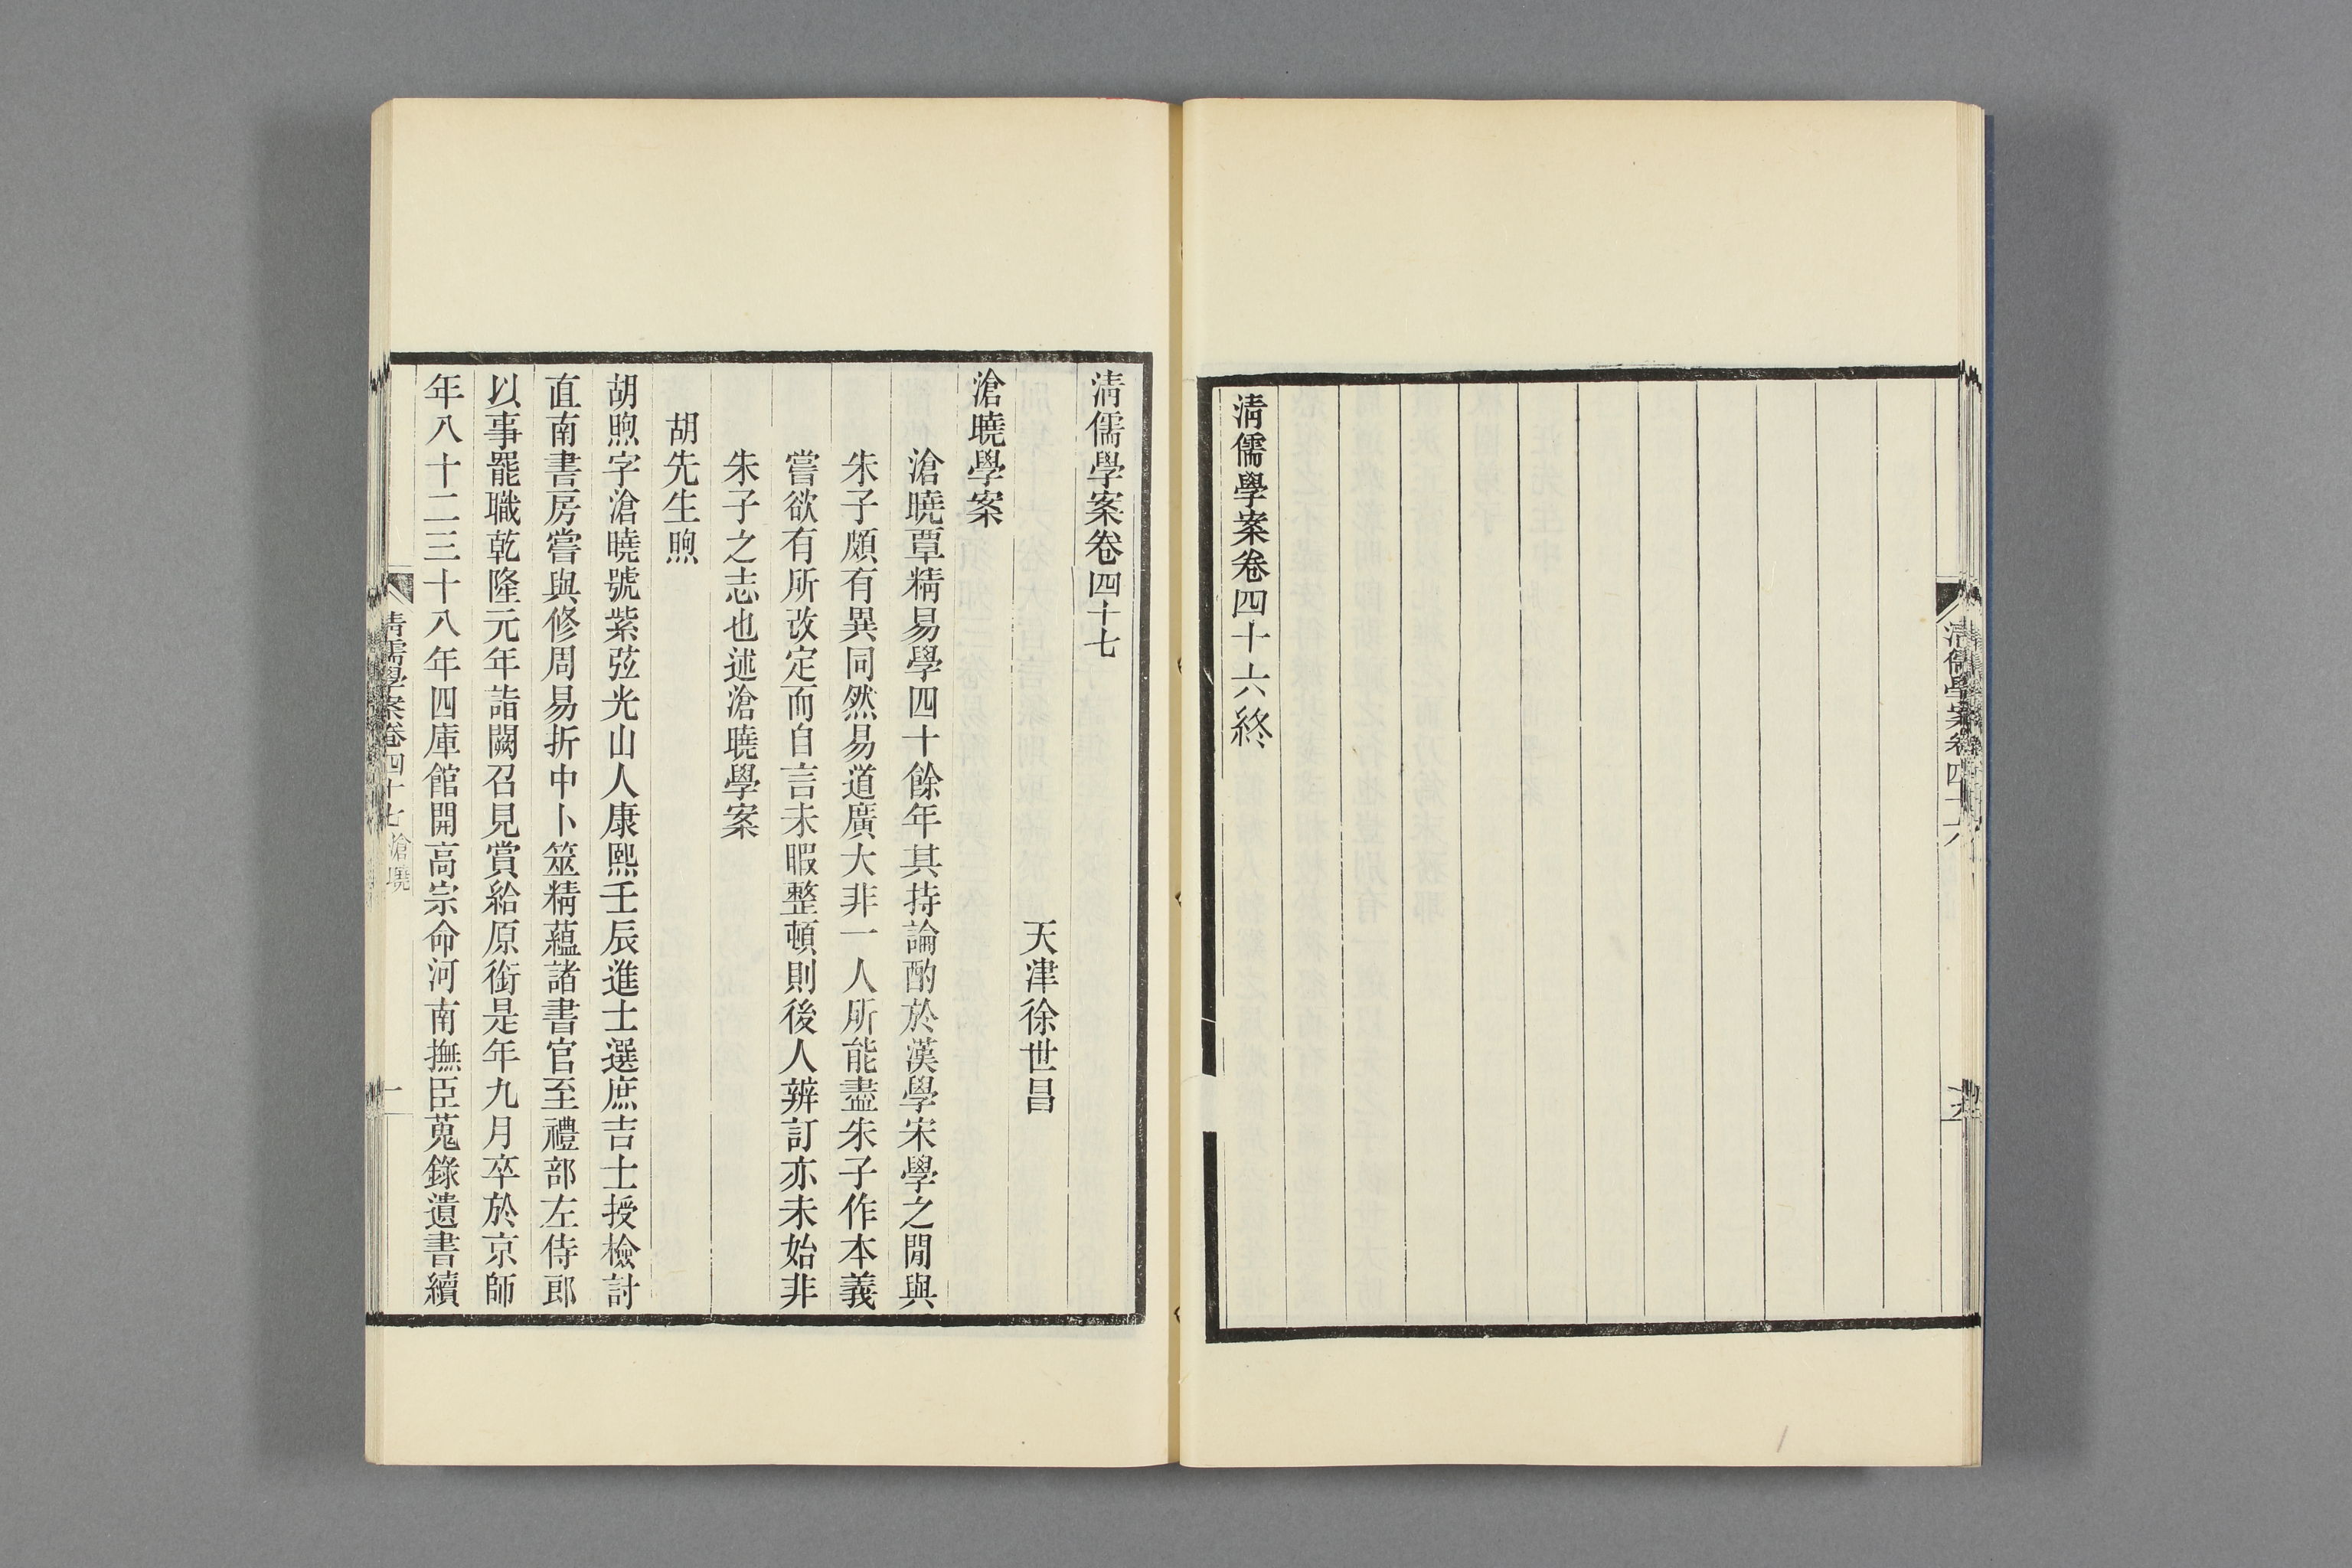 清儒學案卷四十六終
清儒學案卷四十七
天津徐世昌
滄曉學案
滄曉覃精易學四十餘年其持論酌於漢學宋學之閒與
朱子頗有異同然易道廣大非一人所能盡朱子作本義
嘗欲有所改定而自言未暇整頓則後人辨訂亦未始非
朱子之志也述滄曉學案
胡先生煦
胡煦字滄曉號紫弦光山人康熙壬辰進士選庶吉士授檢討
直南書房嘗與修周易折中卜筮精蘊諸書官至禮部左侍郎
以事罷職乾隆元年詣闕召見賞給原銜是年九月卒於京師
年八十二三十八年四庫館開高宗命河南撫臣蒐錄遺書續
清儒學案卷四十七 滄曉
一